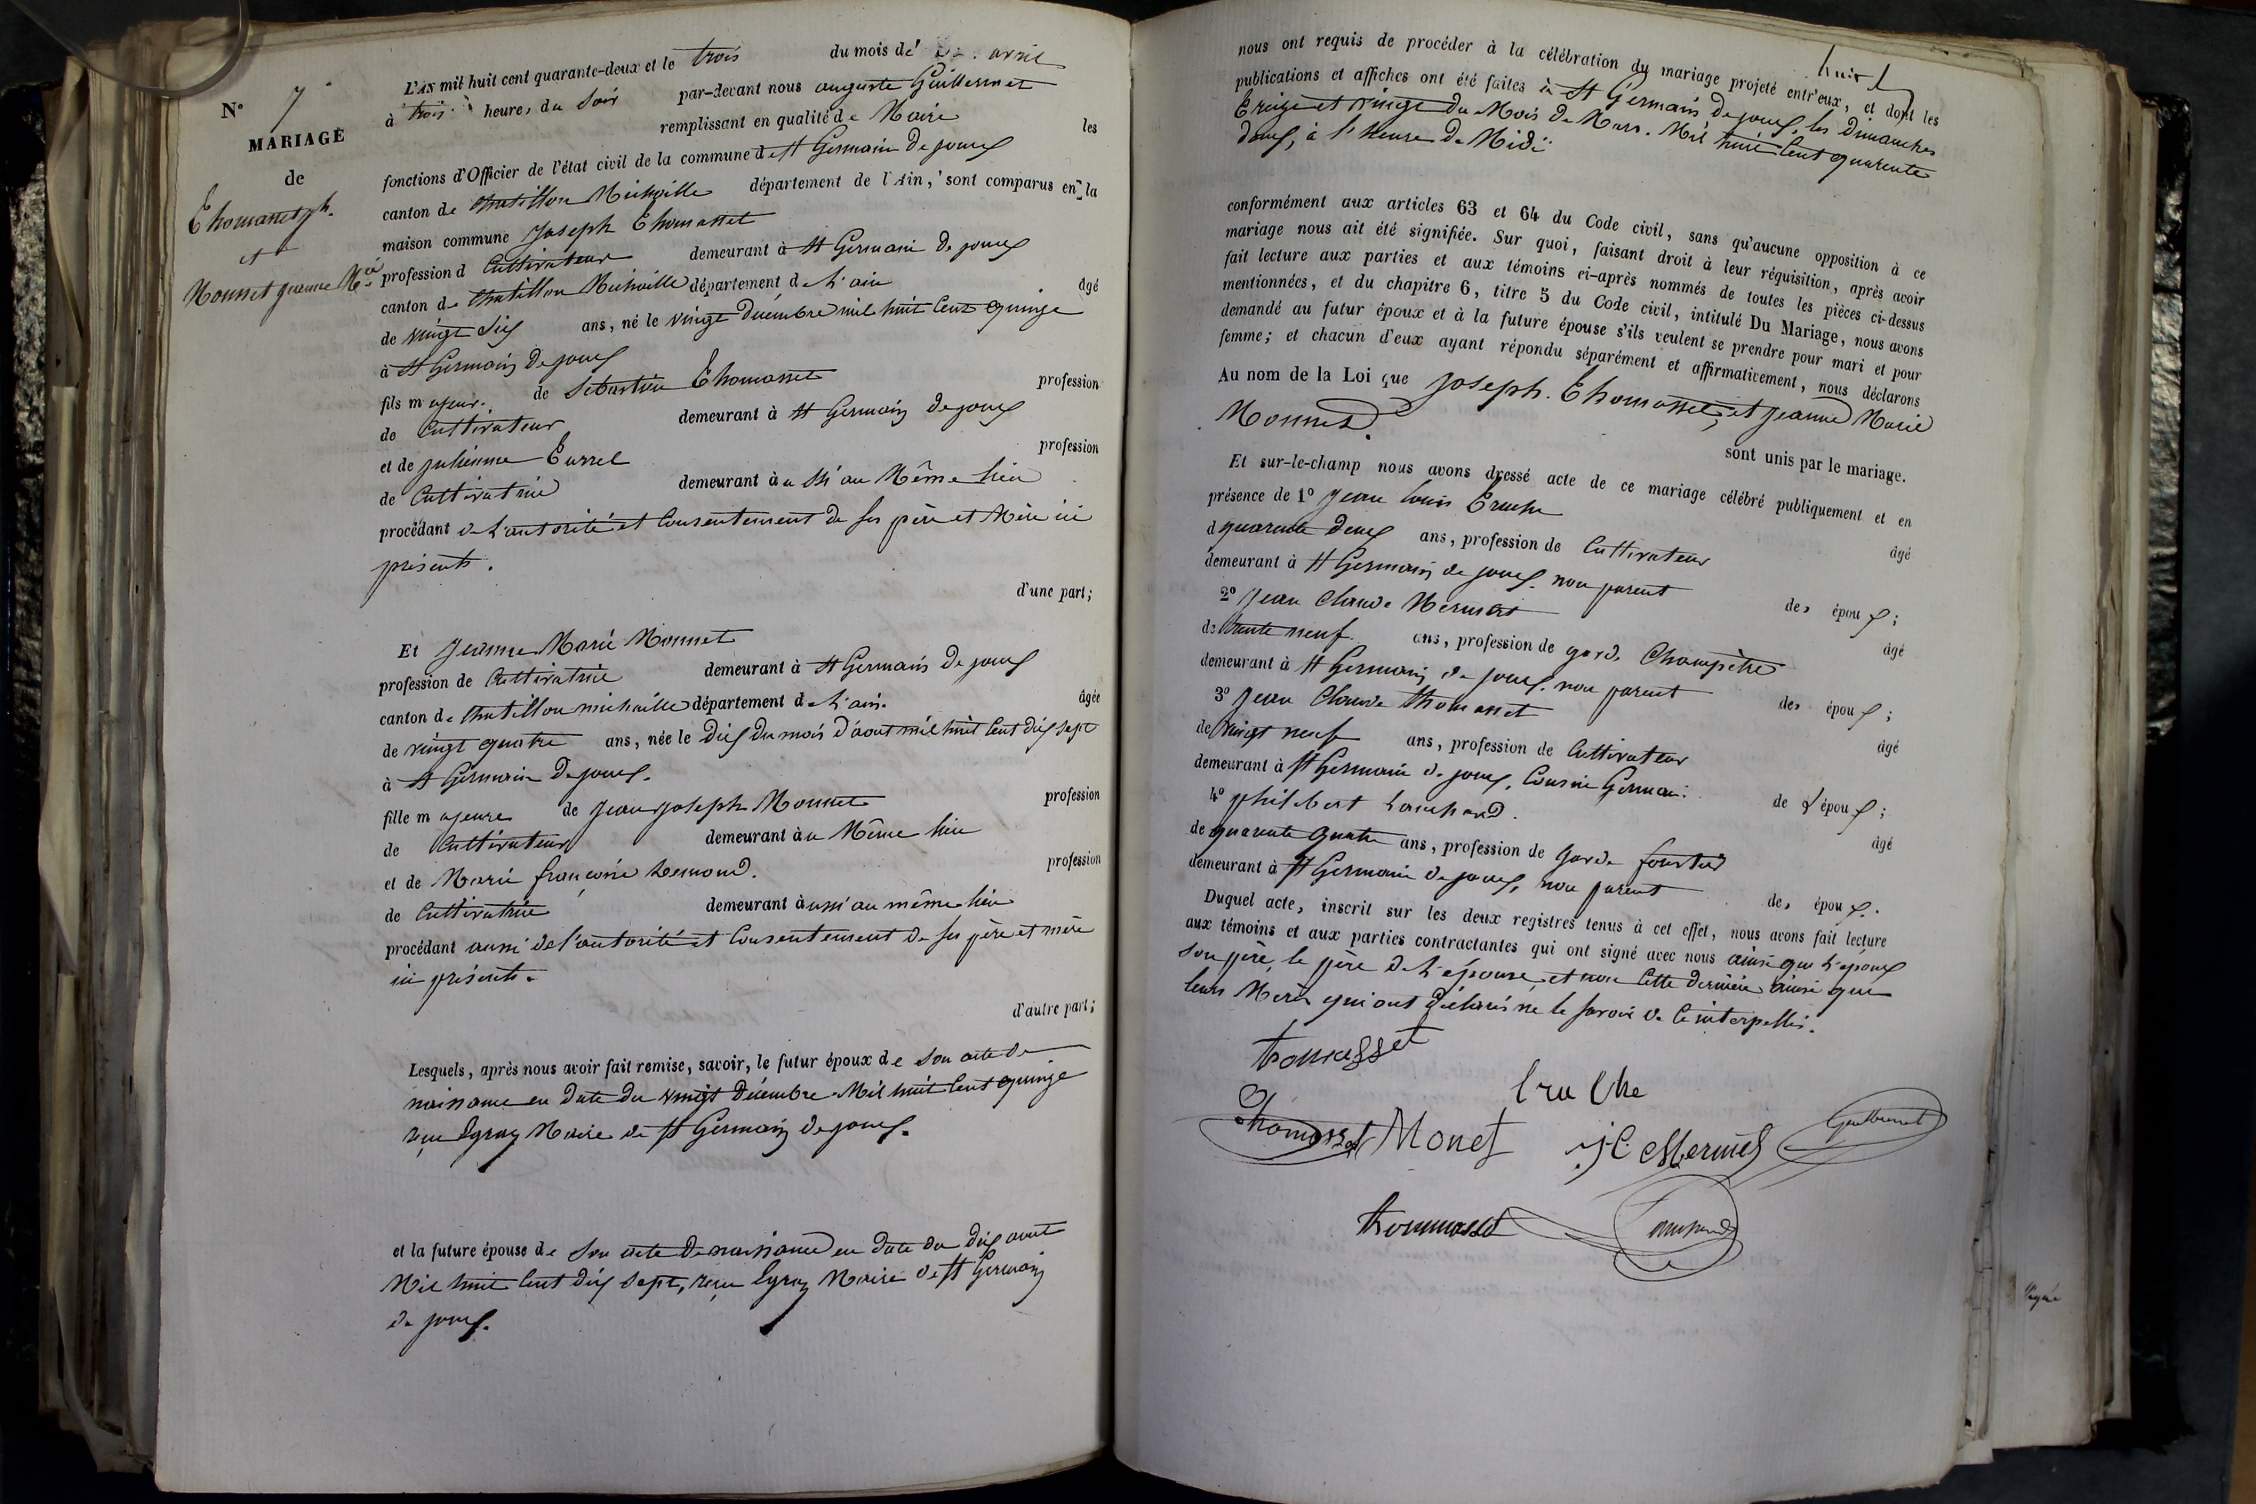 N° 7
MARIAGE
de
Thomasset jh.
et
Monnet jeanne Mie
L'an mil huit cent quarante-deux et le trois du mois de avril
à trois heures du soir par-devant nous auguste Guillermet
remplissant en qualité de Maire les
fonctions d'Officier de l'état civil de la commune de St Germain de joux
canton de Chatillon Michaille département de l'Ain, sont comparus en la
maison commune joseph Thomasset
profession d Cultivateur demeurant à St Germain de joux
canton de Chatillon Michaille département de L'ain âgé
de vingt six ans, né le vingt décembre mil huit Cent quinze
à St Germain de joux
fils majeur de Sébastien Thomasset profession
de Cultivateur demeurant à St Germain de joux
et de julienne Turrel profession
de Cultivatrice demeurant à u ssi au Même lieu
procédant de L'autorité et Consentement de ses père et Mère ici
présents.
d'une part;
Et jeanne Marie Monnet
profession de Cultivatrice demeurant à St Germain de joux
canton de Chatillon michaille département de L'ain. âgée
de vingt quatre ans, née le dix du mois d'aout mil huit Cent dix sept
à St Germain de joux.
fille majeure de jean joseph Monnet profession
de Cultivateur demeurant àu Même lieu
et de Marie françoise Lemond. profession
de Cultivatrice demeurant àussi au même lieu
procédant aussi de l'autorité et Consentement de ses père et mère
ici présents.
d'autre part;
Lesquels, après nous avoir fait remise, savoir, le futur époux de son acte de
naissance en date du vingt décembre Mil huit Cent quinze
reçu Egraz Maire de St Germain de joux.
et la future épouse de son acte de naissance en date du dix aout
Mil huit Cent dix sept, reçu Egraz Maire de St Germain
de joux.
nous ont requis de procéder à la célébration du mariage projeté entr'eux, et dont les
publications et affiches ont été faites à St Germain de joux, les dimanches
Treize et vingt du Mois de Mars. Mil huit Cent quarante
deux, à l'heure de Midi
conformément aux articles 63 et 64 du Code civil, sans qu'aucune opposition à ce
mariage nous ait été signifiée. Sur quoi, faisant droit à leur réquisition, après avoir
fait lecture aux parties et aux témoins ci-après nommés de toutes les pièces ci-dessus
mentionnées, et du chapitre 6, titre 5 du Code civil, intitulé Du Mariage, nous avons
demandé au futur époux et à la future épouse s'ils veulent se prendre pour mari et pour
femme; et chacun d'eux ayant répondu séparément et affirmativement, nous déclarons
Au nom de la Loi que joseph. Thomasset, et jeanne Marie
Monnet.
sont unis par le mariage.
Et sur-le-champ nous avons dressé acte de ce mariage célébré publiquement et en
présence de 1° jean louis Cruche âgé
d quarante deux ans, profession de Cultivateur
demeurant à St Germain de joux. non parent des époux;
2° jean Claude Mermet âgé
de trente neuf ans, profession de garde Champêtre
demeurant à St Germain de joux. non parent des époux;
3° jean Claude thomasset âgé
de vingt neuf ans, profession de Cultivateur
demeurant à St Germain de joux, Cousin Germain de l'époux;
4° philibert âgé
de quarante quatre ans, profession de garde forestier
demeurant à St Germain de joux, non parent des époux.
Duquel acte, inscrit sur les deux registres tenus à cet effet, nous avons fait lecture
aux témoins et aux parties contractantes qui ont signé avec nous ainsi que l'époux
son père, le père de L'épouse, et non Cette dernière ainsi que
leurs Mères qui ont déclarés ne le savoir de Ce interpellés.
tomasset
Cruche
Thomasset Monet J.C. Mermet Guillermet
thommasset